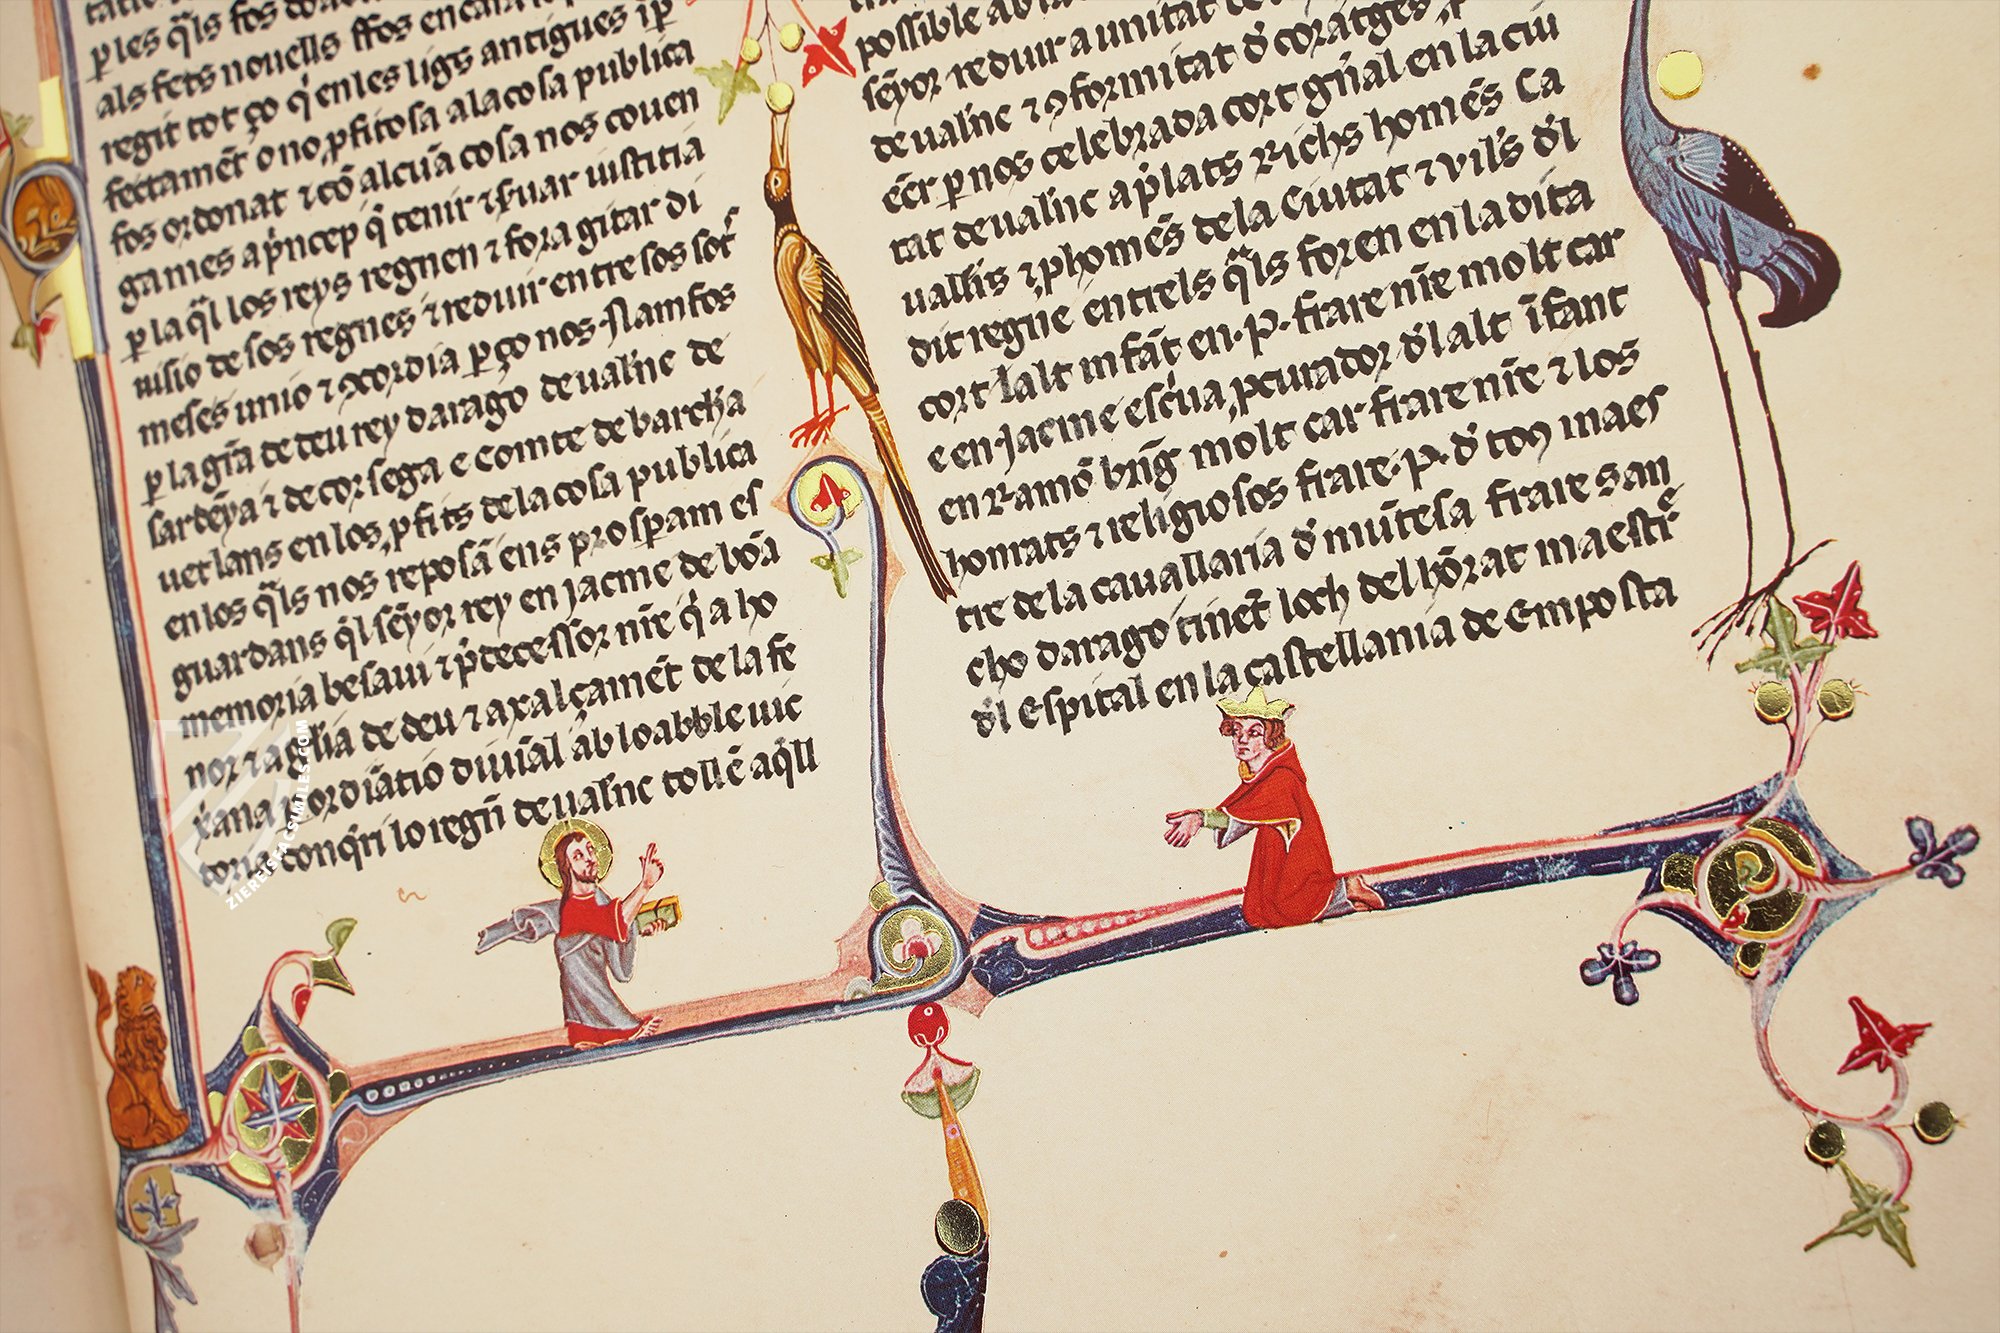 ples q̃ls fos
als fets nouells ffos encara
regit tot ço q̃ en les ligs antigues ip̃
fectamẽt o no, pfitosa ala cosa publica
fos ordonat ⁊ cõ alcũa cosa nos couen
ga mes a pͥncep q̃ tenir ⁊ s̃uar iusticia
ꝑ la q̃l los reys regnen ⁊ fora gitar di
uisio de sos regnes ⁊ reduir entre sos sot̃
meses unio ⁊ ꝯcordia ꝑ ço nos Namfos
ꝑ la gr̃a de deu rey darago de ualñc de
sardẽya ⁊ de corsega e comte de barcħa
uetlans en los ꝓfits dela cosa publica
en los q̃ls nos reposã e ns prosꝑam es
guardans q̃l sẽyor rey en Jacme de bõa
memoria besaui ⁊ p̃decessor nr̃e q̃ a ho
nor ⁊ a gl̃ia de deu ⁊ axalçamẽt de la fe
xͥana ꝑ ordĩatio diuĩal ab loabble uic
toria conq̃ri lo regñ de ualñc tollẽ aq̃ll
possible
sẽyor reduir a unitat de
de ualñc ⁊ ꝯformitat d̃ coratges
ẽer ꝑ nos celebrada cort gñal en la ciu
tat de ualñc a p̃lats Richs homẽs Ca
uallis ⁊ ꝓhomẽs dela Ciutat ⁊ vil̃s d̃l
dit regne entrels q̃ls foren en la dita
cort lalt infãt en .P. frare nr̃e molt car
e en Jacme esc̃ua, ꝓcurador d̃l alt ĩfant
en Ramõ br̃ng̃ molt car frare nr̃e ⁊ los
honrats ⁊ religiosos frare .P. d̃ toꝯ maes
tre de la cauallaria d̃ mũtesa frare san
cho darago tinẽt loch del hõrat maestr̃e
d̃l Espital en la castellania de Emposta
ZIEREISFACSIMILES.COM